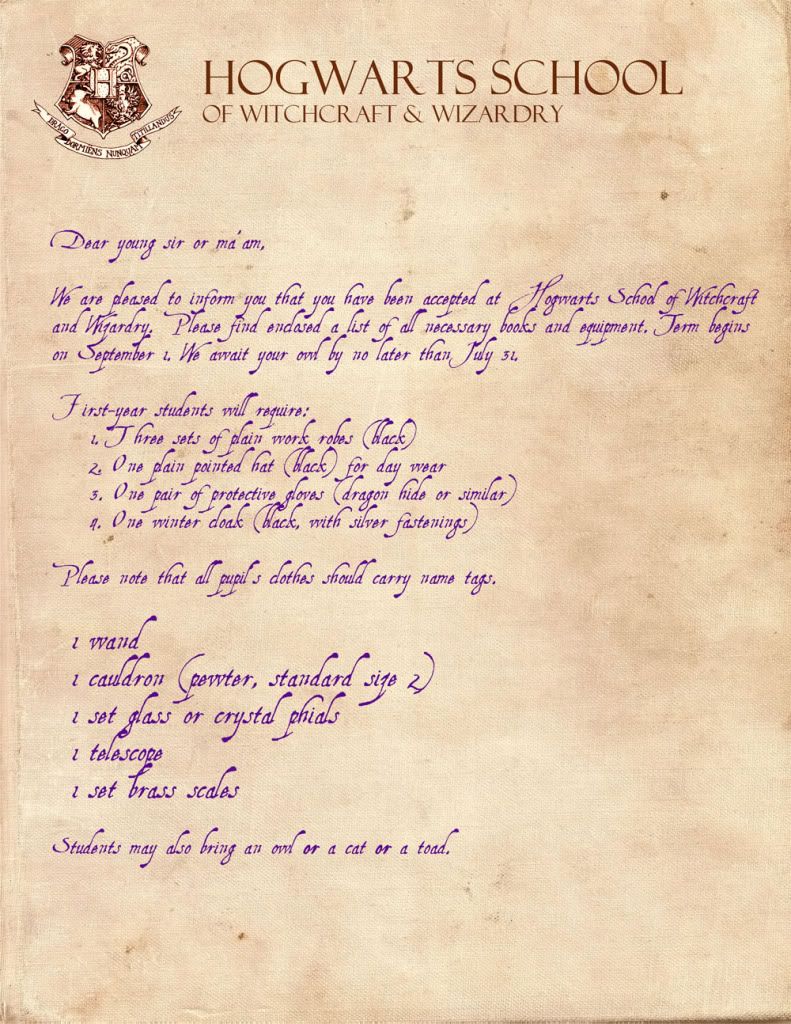 HOGWARTS SCHOOL
OF WITCHCRAFT & WIZARDRY
DRACO DORMIENS NUNQUAM TITILLANDUS
Dear young sir or ma'am,
We are pleased to inform you that you have been accepted at Hogwarts School of Witchcraft
and Wizardry. Please find enclosed a list of all necessary books and equipment. Term begins
on September 1. We await your owl by no later than July 31.
First-year students will require:
1. Three sets of plain work robes (black)
2. One plain pointed hat (black) for day wear
3. One pair of protective gloves (dragon hide or similar)
4. One winter cloak (black, with silver fastenings)
Please note that all pupil's clothes should carry name tags.
1 wand
1 cauldron (pewter, standard size 2)
1 set glass or crystal phials
1 telescope
1 set brass scales
Students may also bring an owl or a cat or a toad.